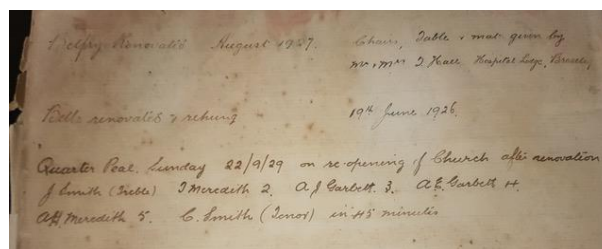 Belfry Renovated August 1927. Chairs, Table & mat given by
Mr & Mrs T Hall Hospital Lodge, Broseley
Bells renovated & rehung 19th June 1926.
Quarter Peal. Sunday 22/9/29 on re-opening of Church after renovation
J Smith (Treble) T Meredith 2. A J Garbett. 3. A E Garbett 4.
A H Meredith 5. C. Smith (Tenor) in 45 minutes